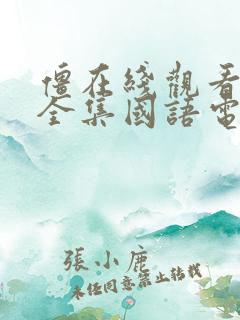 僵在綫觀看
全集國語電
張小鹿
未经同意禁止转载